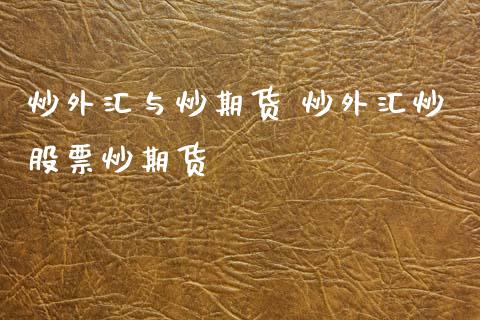 炒外汇与炒期货 炒外汇炒
股票炒期货